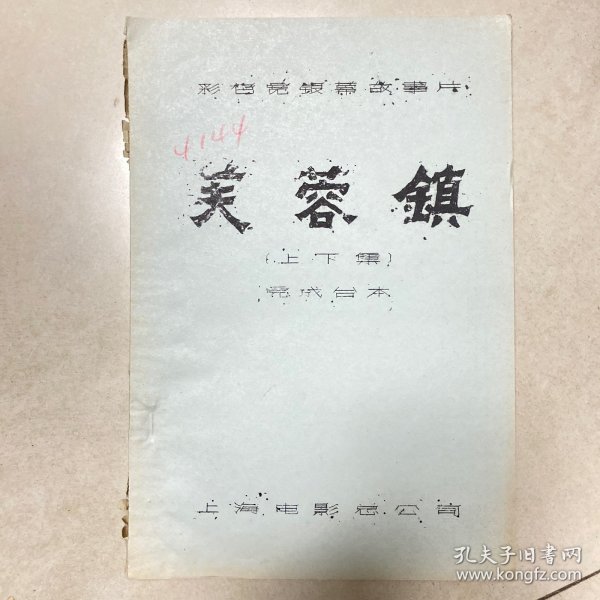 彩色宽银幕故事片
4144
芙蓉鎮
(上下集)
完成台本
上海电影总公司
孔夫子旧书网
www.kongfz.com